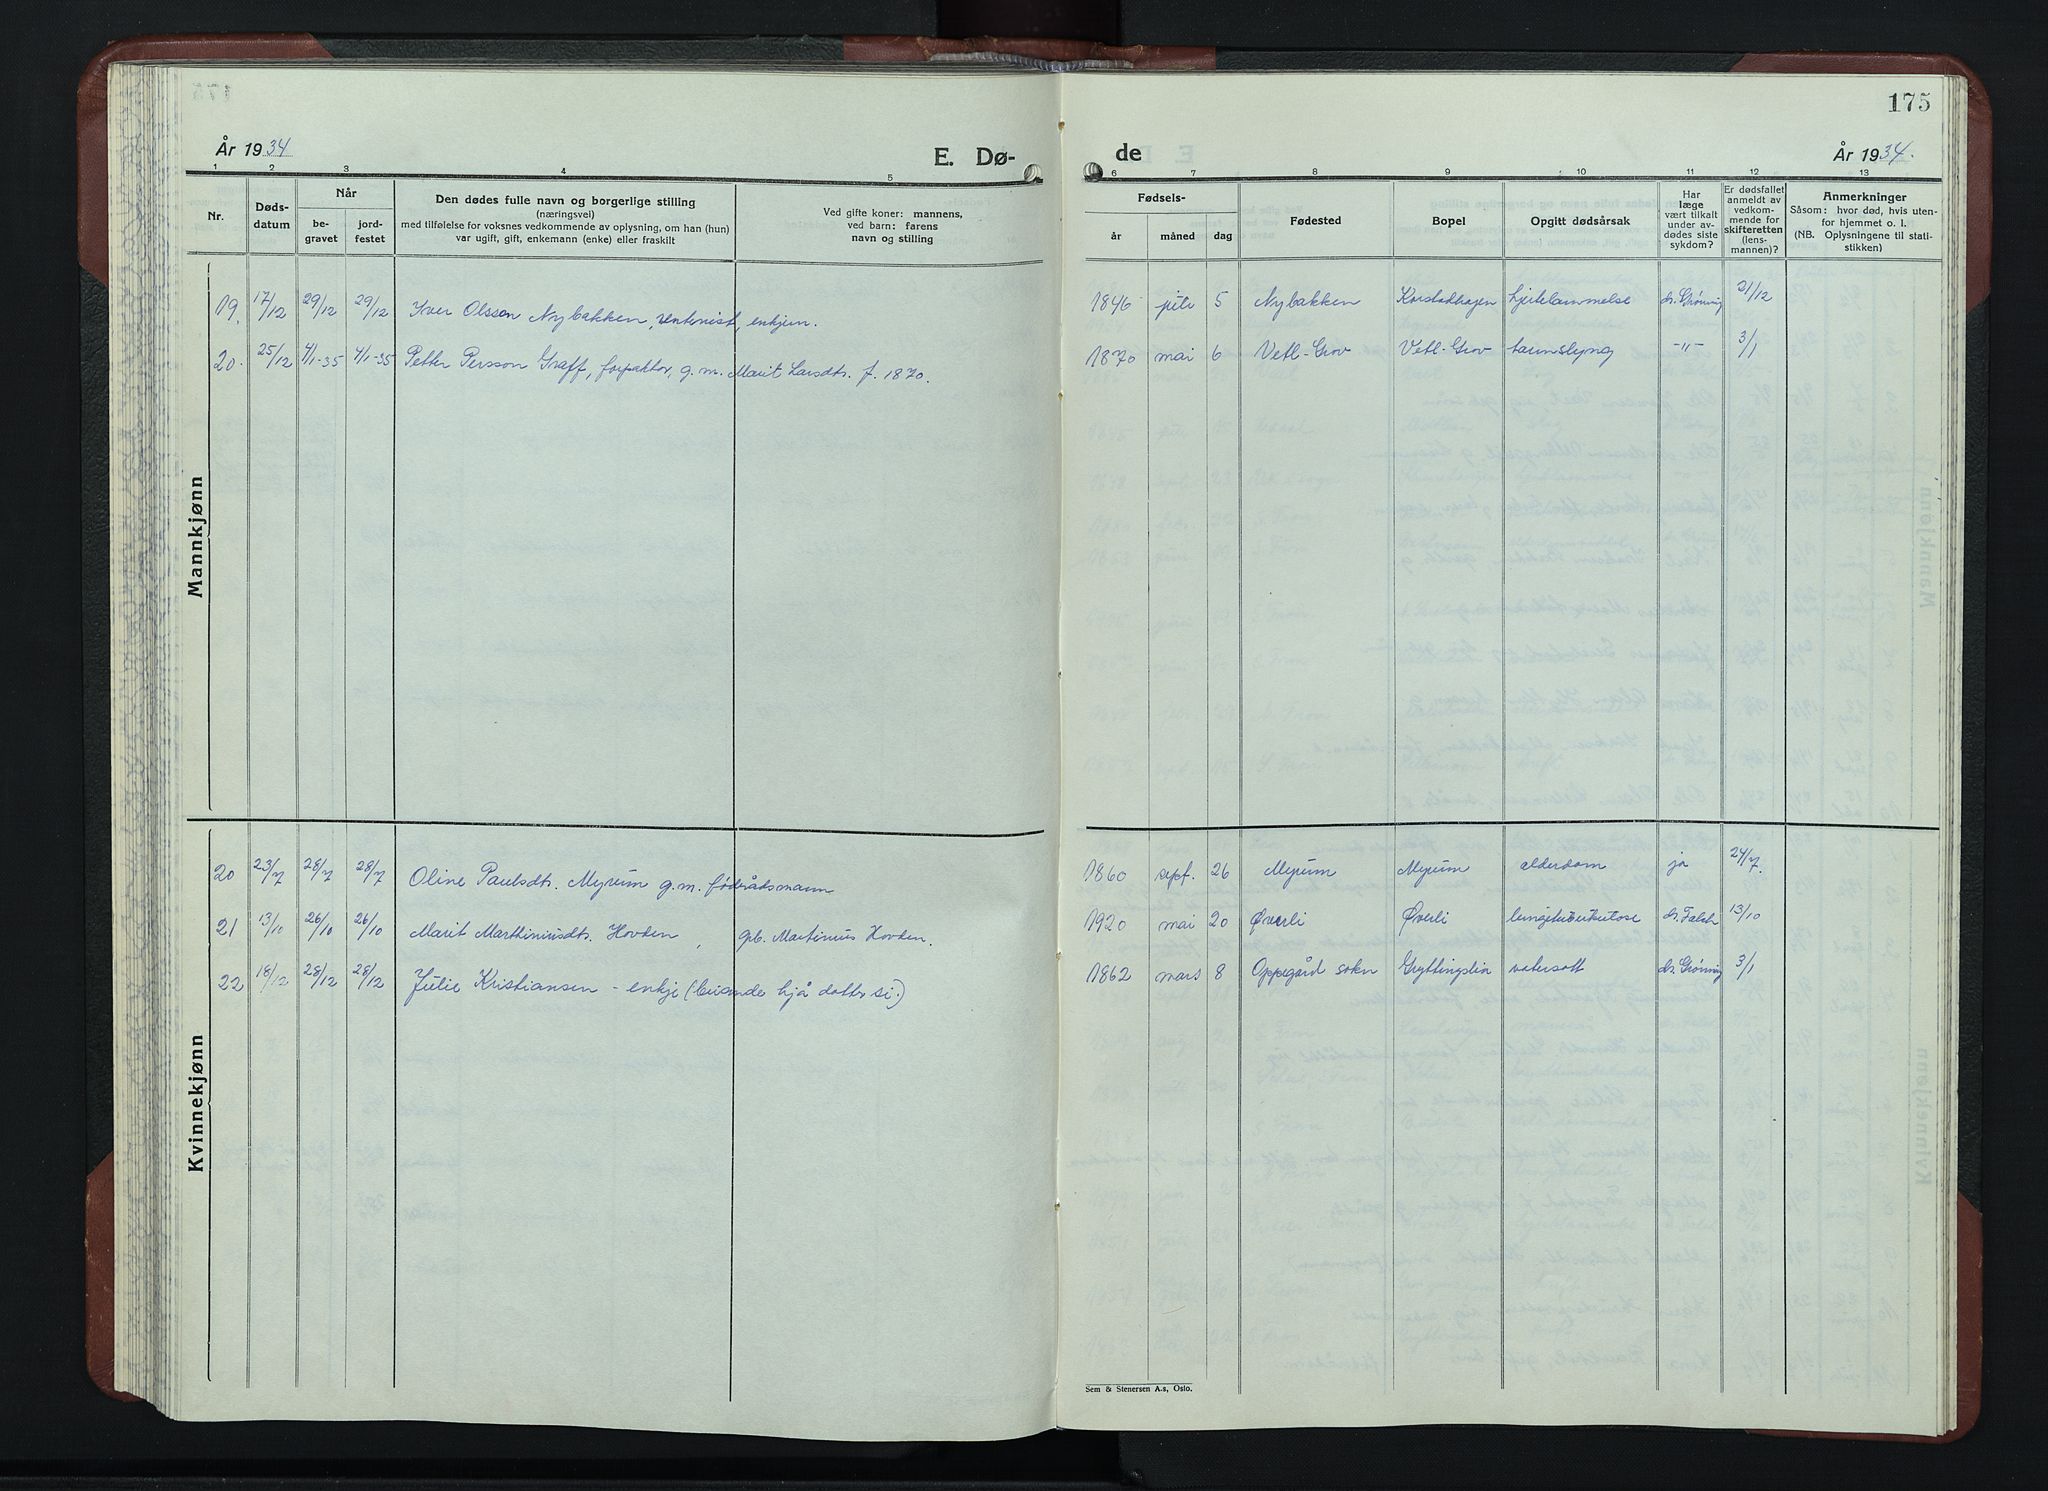 175
År 1934
E. Dø-
de
År 1934.
1 2 3 4 5 6 7 8 9 10 11 12 13
Nr.
Døds-
datum
Når
be-
gravet
jord-
festet
Den dødes fulle navn og borgerlige stilling
(næringsvei)
med tilføielse for voksnes vedkommende av oplysning, om han (hun)
var ugift, gift, enkemann (enke) eller fraskilt
Ved gifte koner: mannens,
ved barn: farens
navn og stilling
Fødsels-
år
måned
dag
Fødested
Bopel
Opgitt dødsårsak
Har
læge
vært tilkalt
under av-
dødes siste
sykdom?
Er dødsfallet
anmeldt av
vedkom-
mende for
skifteretten
(lens-
mannen)?
Anmerkninger
Såsom: hvor død, hvis uten-
for hjemmet o. l.
(NB. Oplysningene til stati-
stikken)
Mannkjønn
19. 17/12 29/12 29/12 Iver Olsson Nybakken, rentenist, enkjem. 1846 juli 5 Nybakken Korstadhagen hjertelammelse dr. Grønning 21/12
20. 25/12 4/1-35 4/1-35 Petter Persson Graff, forpaktor, g. m. Marit Larsdtr. f. 1870. 1870 mai 6 Vetl-Grov Vetl-Grov tarmslyng -"- 3/1
Kvinnekjønn
20 23/7 28/7 28/7 Oline Paulsdtr. Myrum g. m. føderådsmann 1860 sept. 26 Myrum Myrum alderdom ja 24/7.
21 13/10 26/10 26/10 Marit Marthiniusdtr. Hovden, grb. Martinius Hovden. 1920 mai 20 Øverli Øverli lungetuberkulose dr. Falch 13/10
22 18/12 28/12 28/12 Julie Kristiansen - enkje (buande hjå dotter si.) 1862 mars 8 Oppegård sokn Gryttingslia vatersott dr. Grønning 3/1
Sem & Stenersen A.s, Oslo.